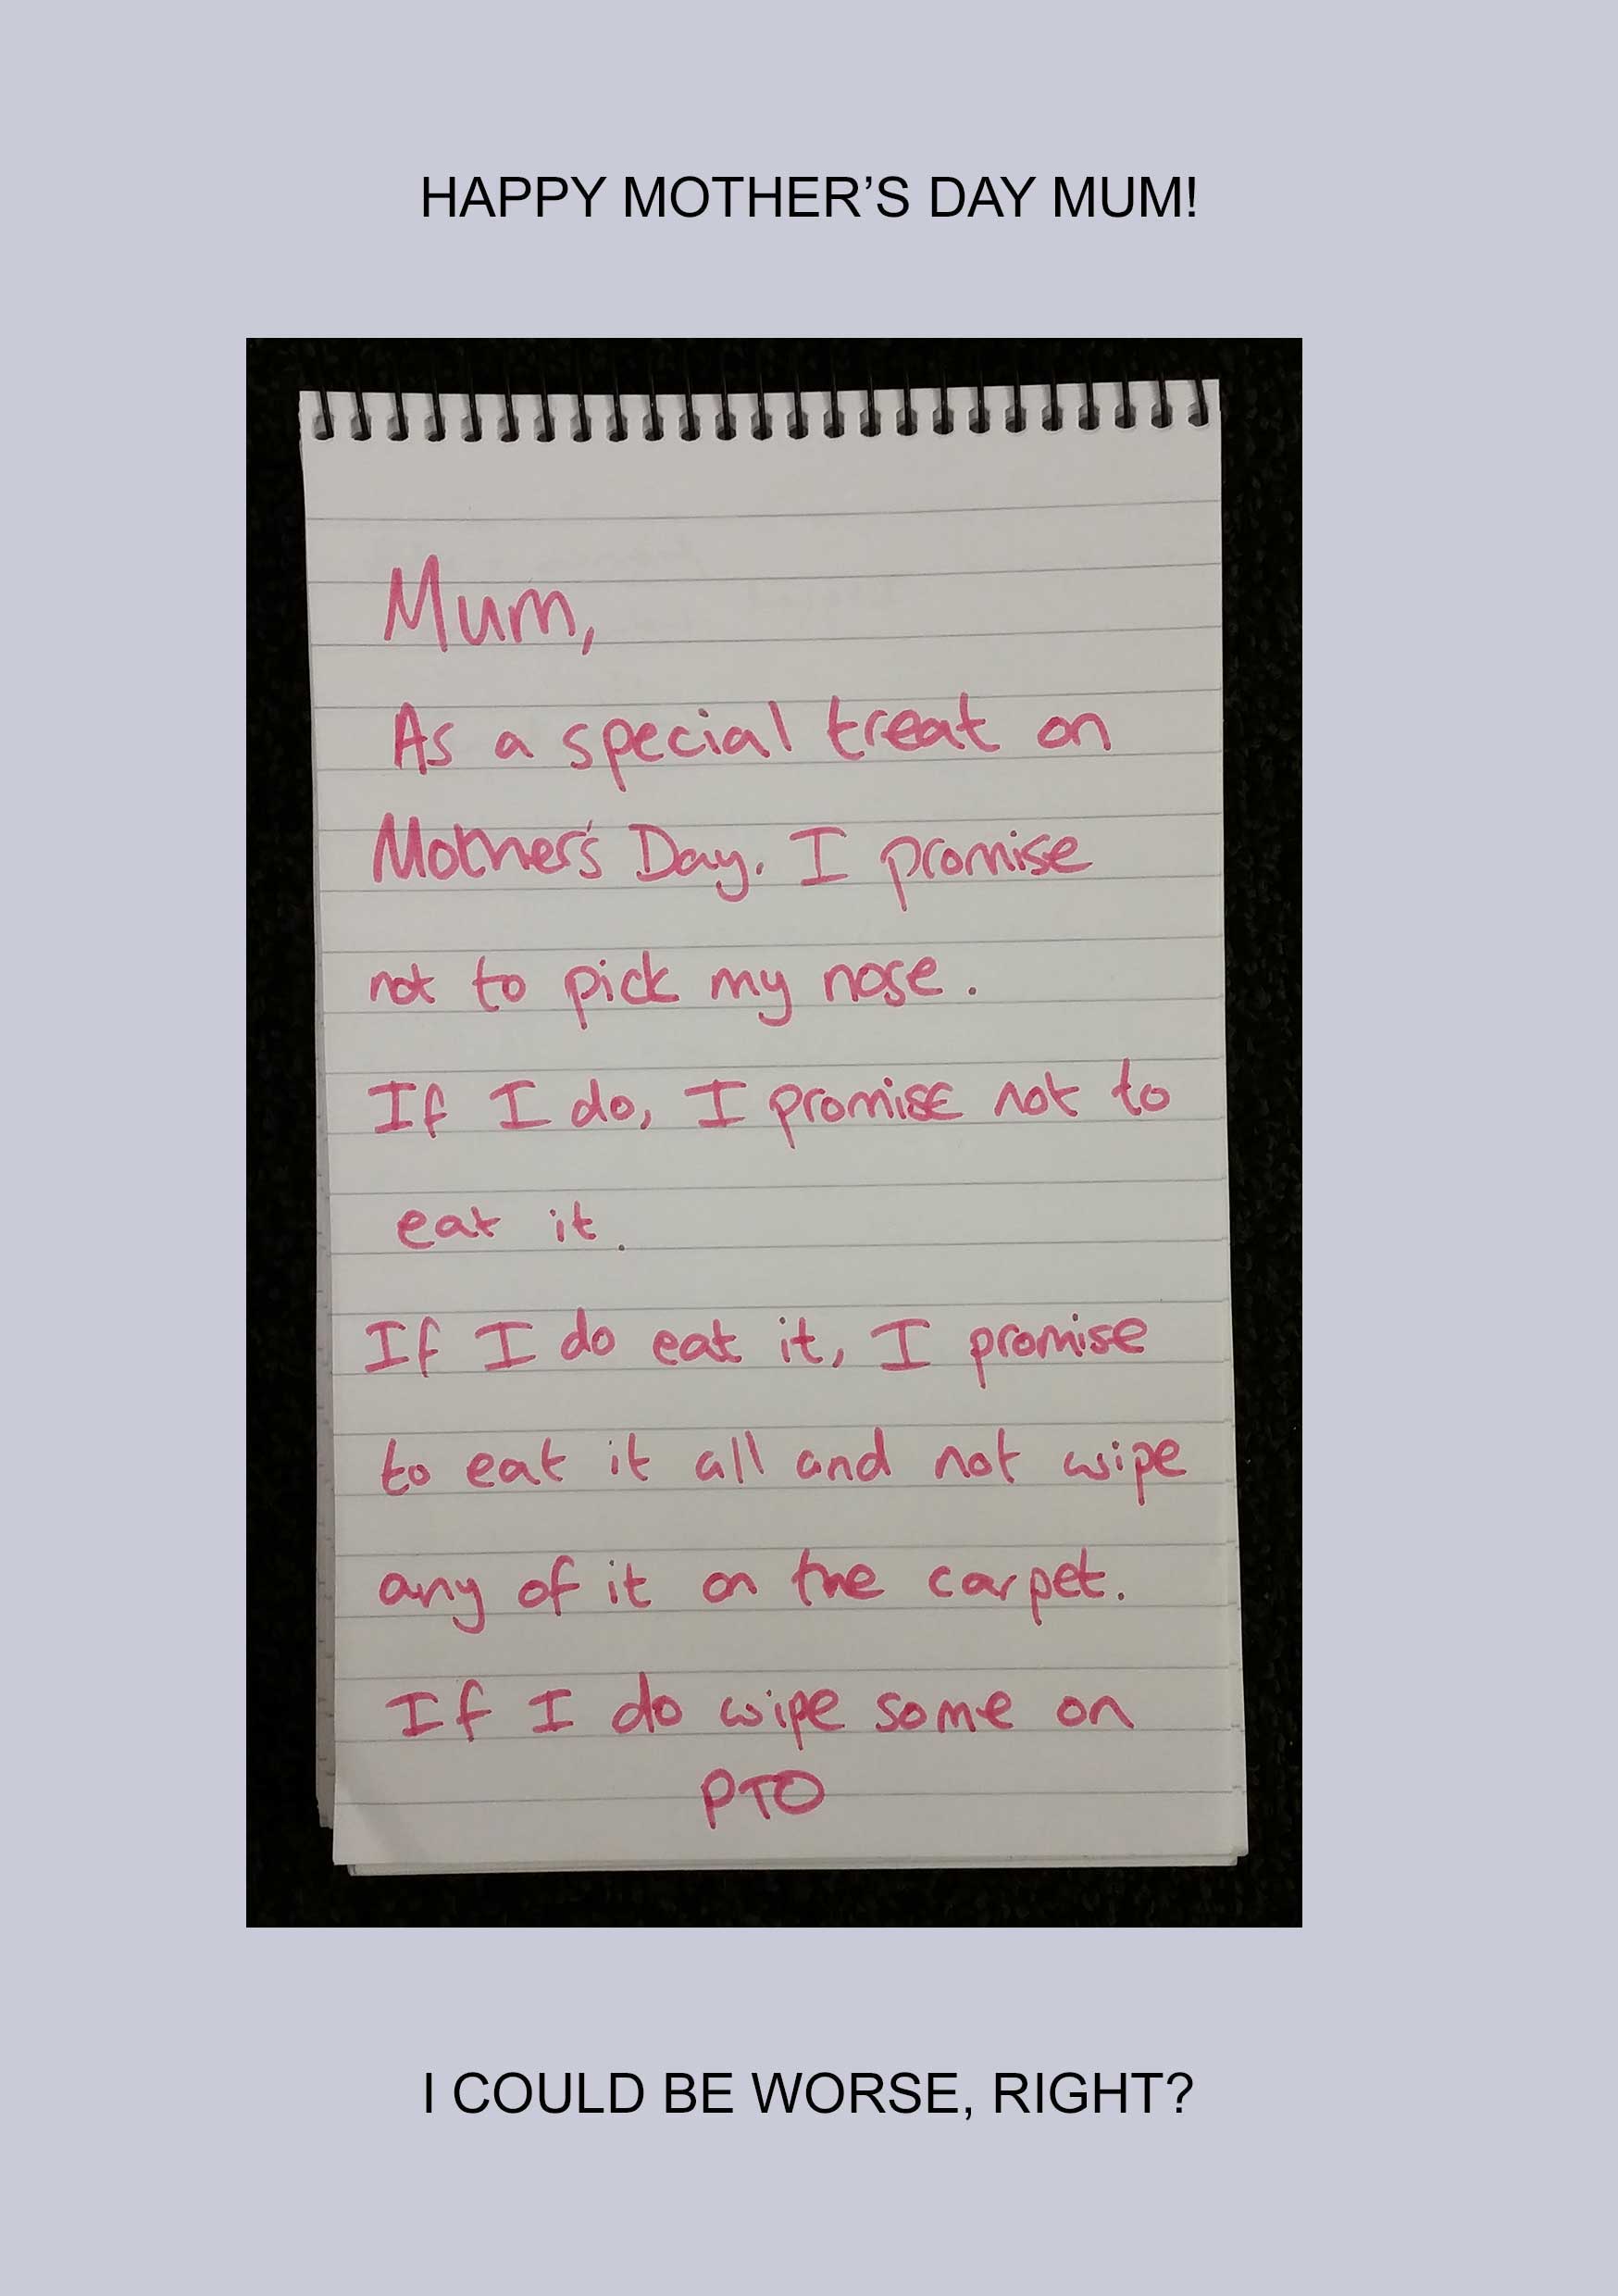 HAPPY MOTHER’S DAY MUM!
Mum,
As a special treat on
Mother's Day. I promise
not to pick my nose.
If I do, I promise not to
eat it.
If I do eat it, I promise
to eat it all and not wipe
any of it on the carpet.
If I do wipe some on
PTO
I COULD BE WORSE, RIGHT?